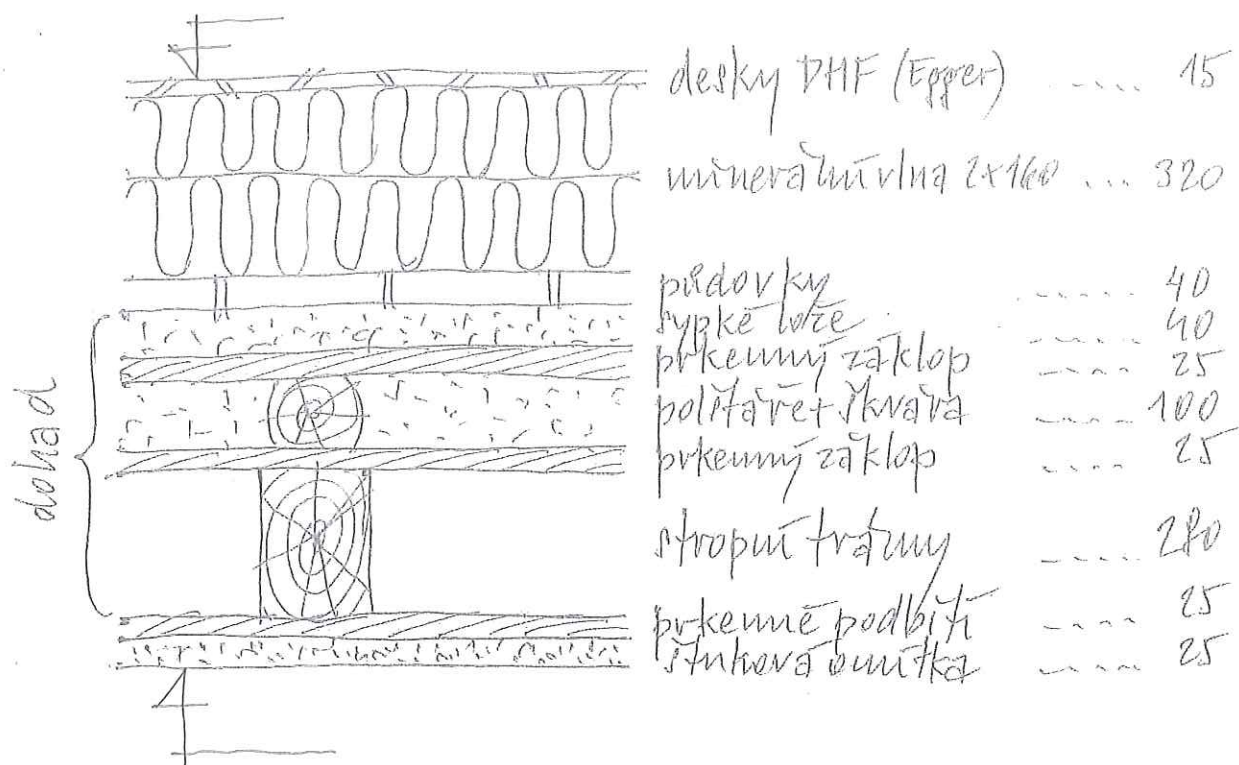 desky DHF (Egger) .... 15
minerální vlna 2x160 ... 320
půdovky ..... 40
sypké lože ..... 40
prkenný záklop .... 25
polštáře + škvára .... 100
prkenný záklop .... 25
stropní trámy ..... 280
prkenné podbití .... 25
štuková omítka .... 25
dohad